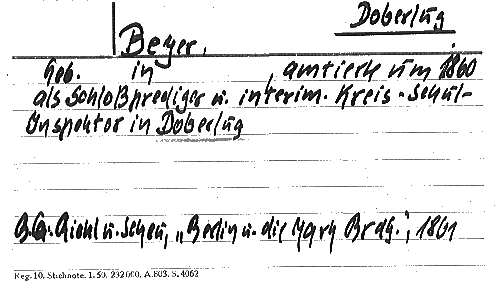 Doberlug
Beyer.
Geb. in , amtierte um 1860
als Schloßprediger u. interim. Kreis-Schul-
Inspektor in Doberlug
Riehl u. Scheu, „Berlin u. die Mark Brdg.", 1861
Reg. 10. Stichnote. 1. 50. 232000. A.803. S. 4062